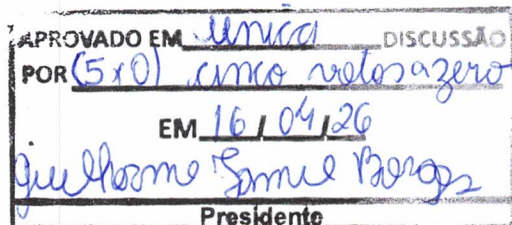 APROVADO EM única DISCUSSÃO
POR (5x0) cinco votos a zero
EM 16/04/26
Guilherme Samuel Borges
Presidente